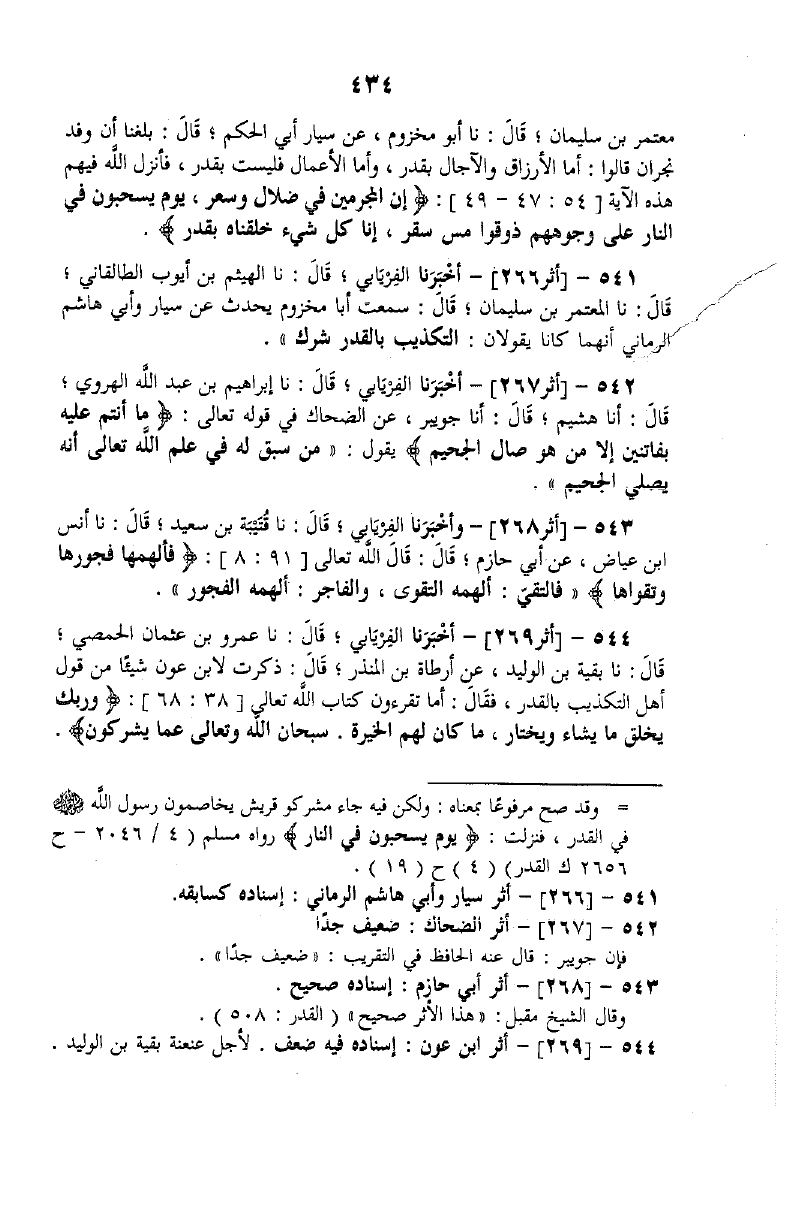 ٤٣٤
معتمر بن سليمان ؛ قَالَ : نا أبو مخزوم ، عن سيار أبي الحكم ؛ قَالَ : بلغنا أن وفد
نجران قالوا : أما الأرزاق والآجال بقدر ، وأما الأعمال فليست بقدر ، فأنزل اللَّه فيهم
هذه الآية [ ٥٤ : ٤٧ – ٤٩ ] : ﴿ إن المجرمين في ضلال وسعر ، يوم يسحبون في
النار على وجوههم ذوقوا مس سقر ، إنا كل شيء خلقناه بقدر ﴾ .
٥٤١ – [أثر٢٦٦] – أخْبَرَنا الفِرْيَابي ؛ قَالَ : نا الهيثم بن أيوب الطالقاني ؛
قَالَ : نا المعتمر بن سليمان ؛ قَالَ : سمعت أبا مخزوم يحدث عن سيار وأبي هاشم
الرماني أنهما كانا يقولان : التكذيب بالقدر شرك » .
٥٤٢ – [أثر٢٦٧] – أخْبَرَنا الفِرْيَابي ؛ قَالَ : نا إبراهيم بن عبد اللَّه الهروي ؛
قَالَ : أنا هشيم ؛ قَالَ : أنا جويبر ، عن الضحاك في قوله تعالى : ﴿ ما أنتم عليه
بفاتنين إلا من هو صال الجحيم ﴾ يقول : « من سبق له في علم اللَّه تعالى أنه
يصلي الجحيم » .
٥٤٣ – [أثر٢٦٨] – وأخْبَرَنا الفِرْيَابي ؛ قَالَ : نا قُتَيْبَة بن سعيد ؛ قَالَ : نا أنس
ابن عياض ، عن أبي حازم ؛ قَالَ : قَالَ اللَّه تعالى [ ٩١ : ٨ ] : ﴿ فألهمها فجورها
وتقواها ﴾ « فالتقيّ : ألهمه التقوى ، والفاجر : ألهمه الفجور » .
٥٤٤ – [أثر٢٦٩] – أخْبَرَنا الفِرْيَابي ؛ قَالَ : نا عمرو بن عثمان الحمصي ؛
قَالَ : نا بقية بن الوليد ، عن أرطاة بن المنذر ؛ قَالَ : ذكرت لابن عون شيئًا من قول
أهل التكذيب بالقدر ، فقَالَ : أما تقرءون كتاب اللَّه تعالى [ ٣٨ : ٦٨ ] : ﴿ وربك
يخلق ما يشاء ويختار ، ما كان لهم الخيرة . سبحان اللَّه وتعالى عما يشركون﴾ .
= وقد صح مرفوعًا بمعناه : ولكن فيه جاء مشركو قريش يخاصمون رسول اللَّه ﷺ
في القدر ، فنزلت : ﴿ يوم يسحبون في النار ﴾ رواه مسلم ( ٤ / ٢٠٤٦ – ح
٢٦٥٦ ك القدر) ( ٤ ) ح ( ١٩ ) .
٥٤١ – [٢٦٦] – أثر سيار وأبي هاشم الرماني : إسناده كسابقه.
٥٤٢ – [٢٦٧] – أثر الضحاك : ضعيف جدًا
فإن جويبر : قال عنه الحافظ في التقريب : «ضعيف جدًا» .
٥٤٣ – [٢٦٨] – أثر أبي حازم : إسناده صحيح .
وقال الشيخ مقبل : «هذا الأثر صحيح» ( القدر : ٥٠٨ ) .
٥٤٤ – [٢٦٩] – أثر ابن عون : إسناده فيه ضعف . لأجل عنعنة بقية بن الوليد .